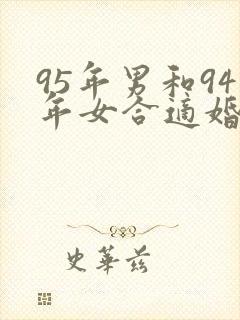 95年男和94
年女合适婚
史華兹